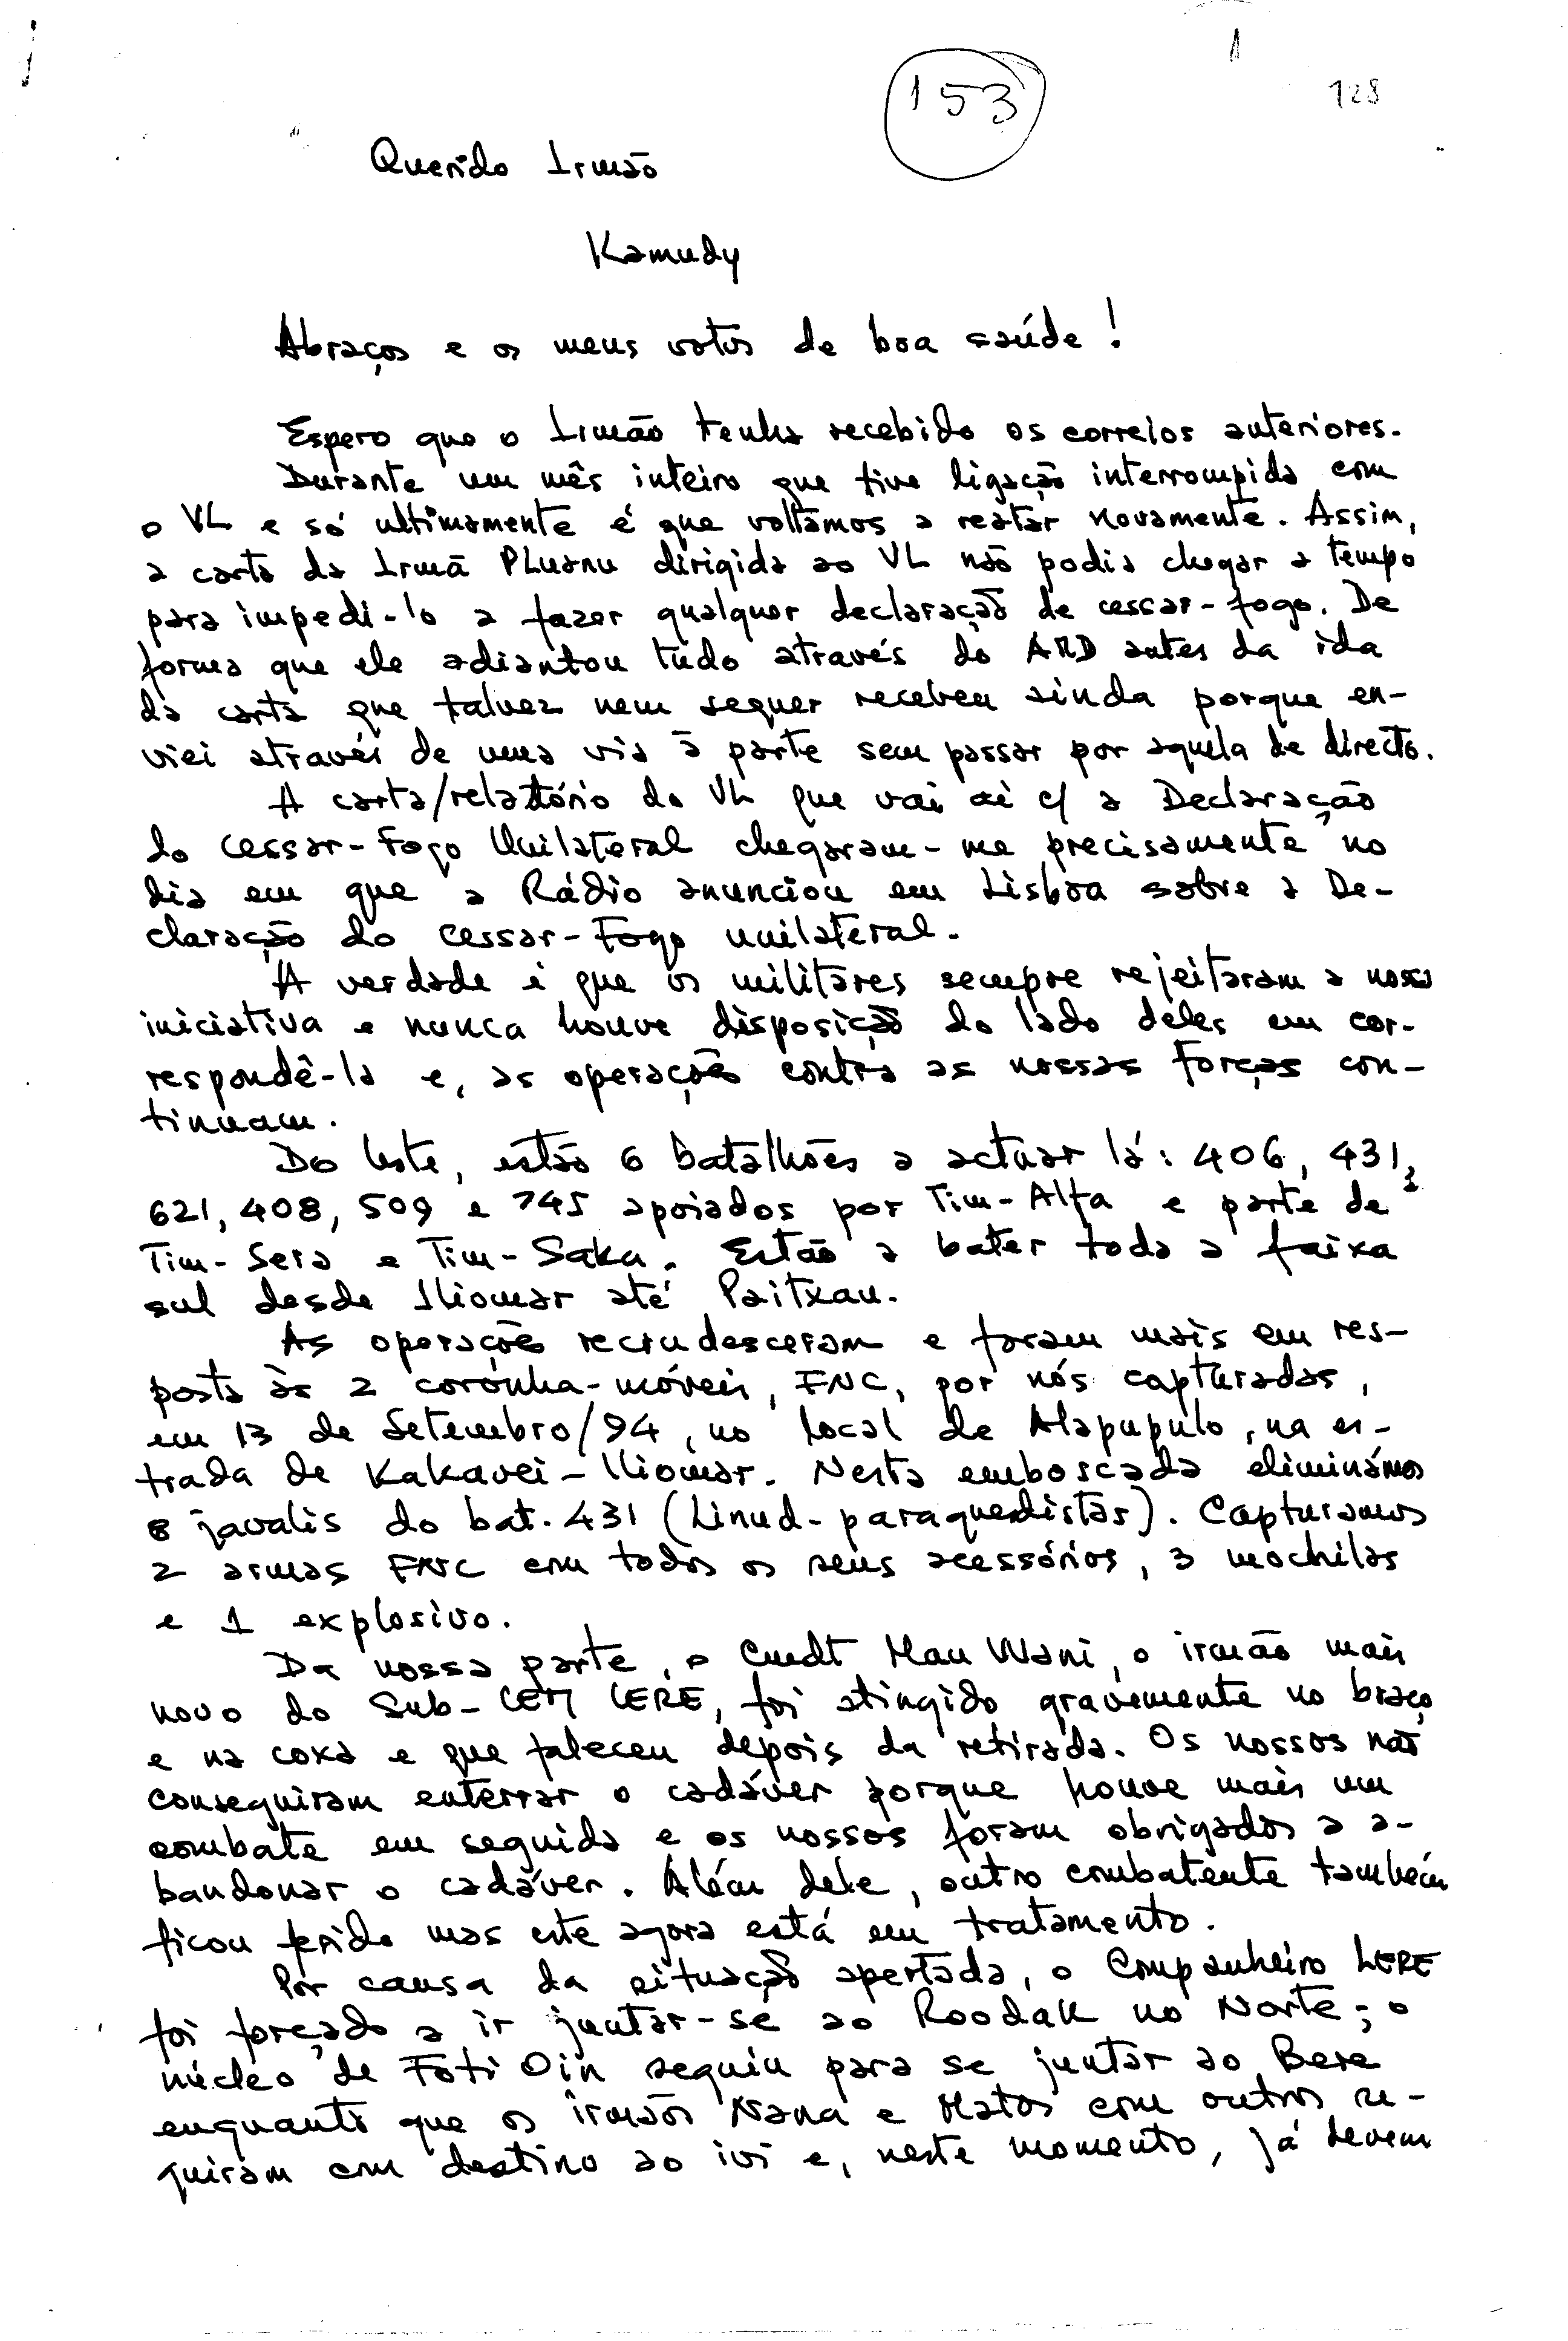 1
153
128
Querido Irmão
Kamudy
Abraços e os meus votos de boa saúde!
Espero que o Irmão tenha recebido os correios anteriores.
Durante um mês inteiro que tive ligação interrompida com
o VL e só ultimamente é que voltámos a reatar novamente. Assim,
a carta da Irmã PLuanu dirigida ao VL não podia chegar a tempo
para impedi-lo a fazer qualquer declaração de cessar-fogo. De
forma que ele adiantou tudo através do ARD antes da ida
da carta que talvez nem sequer recebeu ainda porque en-
viei através de uma via à parte sem passar por aquela de directo.
A carta/relatório do VL que vai aí c/ a Declaração
do Cessar-Fogo Unilateral chegaram-me precisamente no
dia em que a Rádio anunciou em Lisboa sobre a De-
claração do Cessar-Fogo unilateral.
A verdade é que os militares sempre rejeitaram a nossa
iniciativa e nunca houve disposição do lado deles em cor-
respondê-la e, as operações contra as nossas forças con-
tinuam.
Do leste, estão 6 batalhões a actuar lá: 406, 431,
621, 408, 509 e 745 apoiados por Tim-Alfa e parte de
Tim-Sera e Tim-Saka. Estão a bater toda a faixa
sul desde Iliomar até Paitxau.
As operações recrudesceram e foram mais em res-
posta às 2 coronha-móveis, FNC, por nós capturadas,
em 13 de Setembro/94, no local de Alapupulo, na es-
trada de Kakavei-Iliomar. Nesta emboscada eliminámos
8 javalis do bat. 431 (Linud-paraquedistas). Capturamos
2 armas FNC com todos os seus acessórios, 3 mochilas
e 1 explosivo.
Da nossa parte, o Cmdt Mau Wani, o irmão mais
novo do Sub-CEM LERE, foi atingido gravemente no braço
e na coxa e que faleceu depois da retirada. Os nossos não
conseguiram enterrar o cadáver porque houve mais um
combate em seguida e os nossos foram obrigados a a-
bandonar o cadáver. Além dele, outro combatente também
ficou ferido mas este agora está em tratamento.
Por causa da situação apertada, o Companheiro LERE
foi forçado a ir juntar-se ao Roodak no Norte; o
núcleo de Foti Oin seguiu para se juntar ao Bere
enquanto que os irmãos Nana e Matos com outros se-
guiram com destino ao ivi e, neste momento, já devem